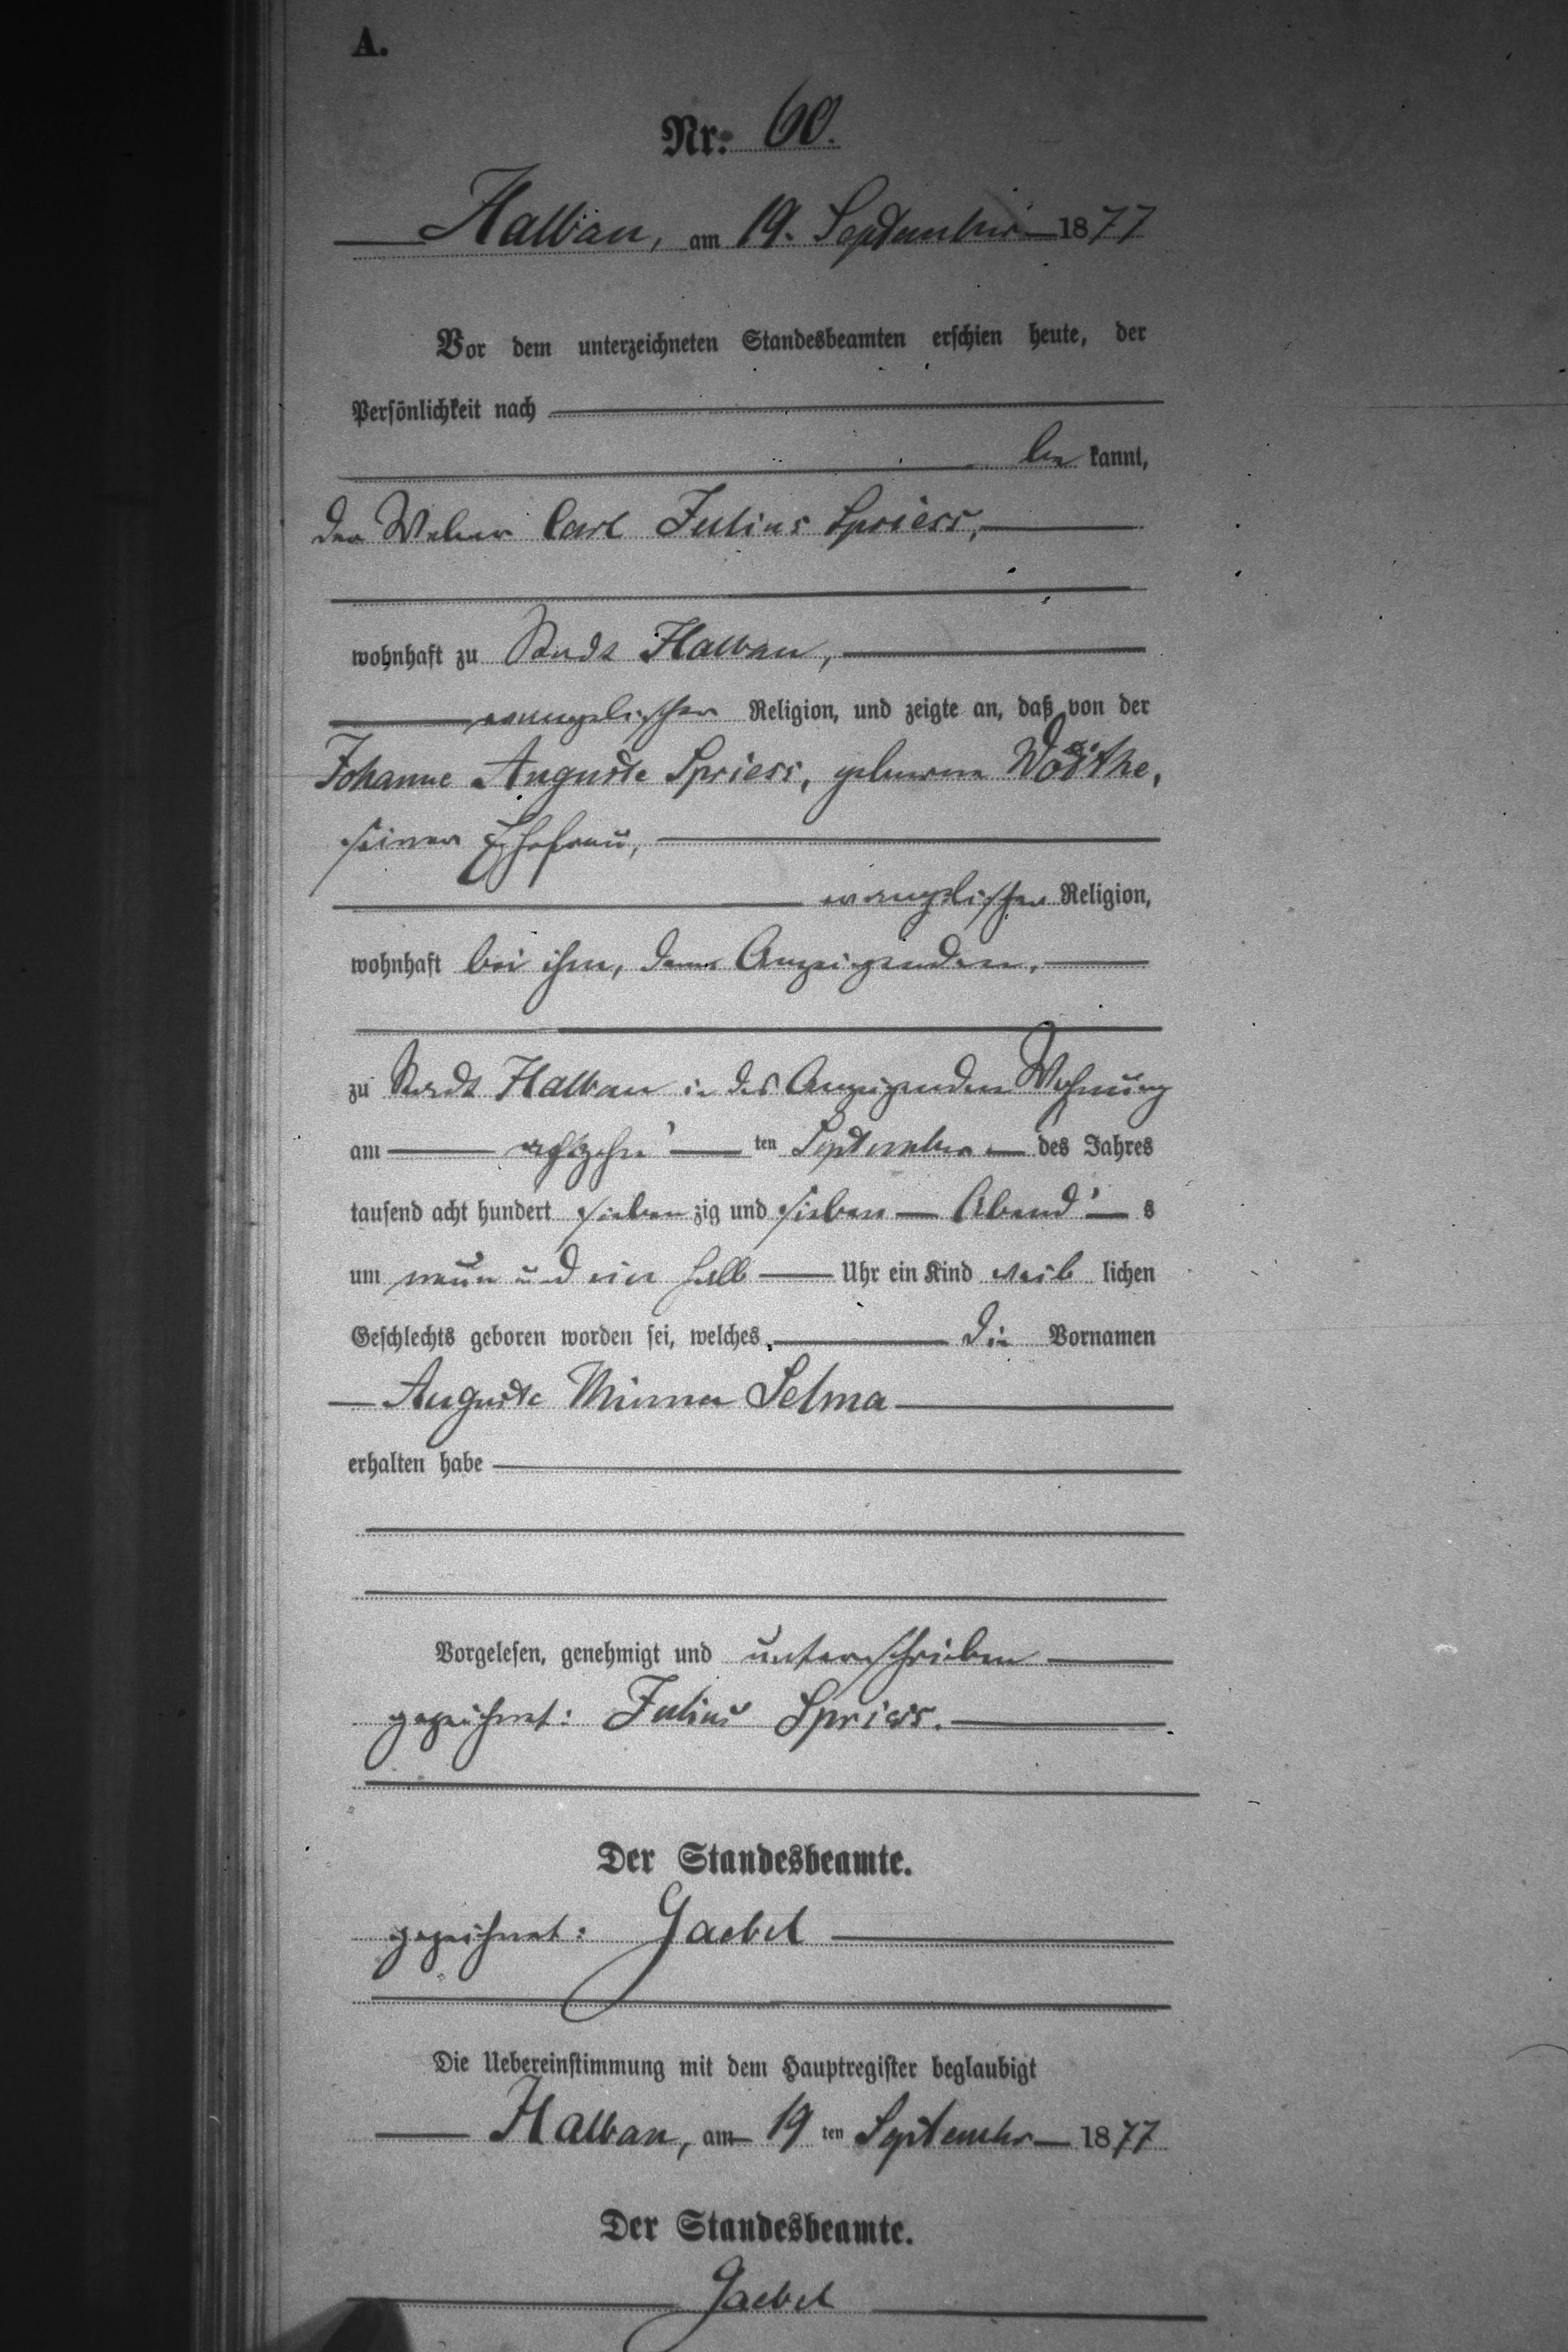 A.
Nr. 60.
Halbau, am 19. September 1877
Vor dem unterzeichneten Standesbeamten erschien heute, der
Persönlichkeit nach
be kannt,
der Weber Carl Julius Spriess,
wohnhaft zu Stadt Halbau,
evangelischer Religion, und zeigte an, daß von der
Johanne Auguste Spriess, geborene Wöithe,
seiner Ehefrau,
evangelischer Religion,
wohnhaft bei ihm, dem Anzeigenden,
zu Stadt Halbau in des Anzeigenden Wohnung
am achtzehn ten September des Jahres
tausend acht hundert sieben zig und sieben Abend s
um neun und ein halb Uhr ein Kind weib lichen
Geschlechts geboren worden sei, welches die Vornamen
Auguste Minna Selma
erhalten habe
Vorgelesen, genehmigt und unterschrieben
gezeichnet: Julius Spriess.
Der Standesbeamte.
gezeichnet: Gaebel
Die Uebereinstimmung mit dem Hauptregister beglaubigt
Halbau, am 19 ten September 1877
Der Standesbeamte.
Gaebel